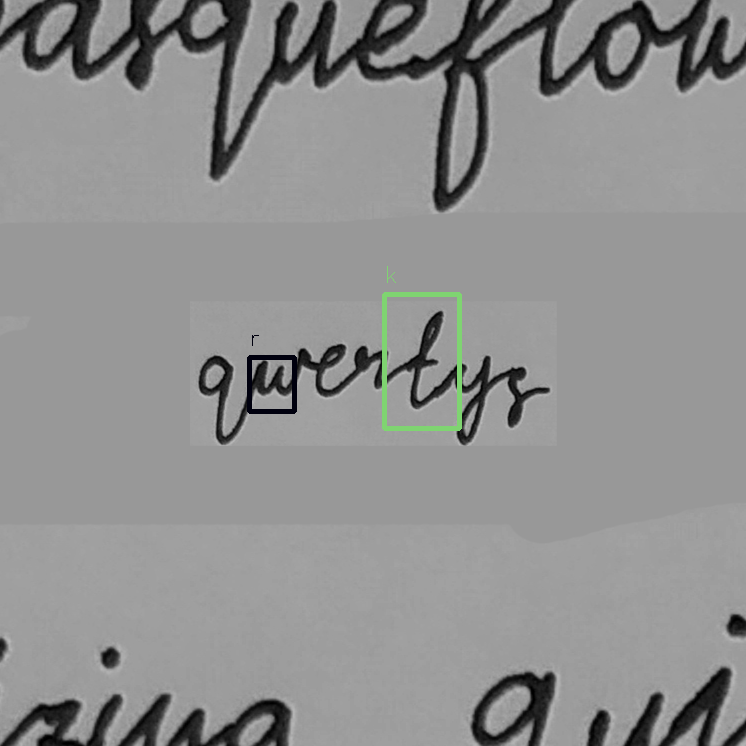 asqueflow
k
r
qwertys
zing qui